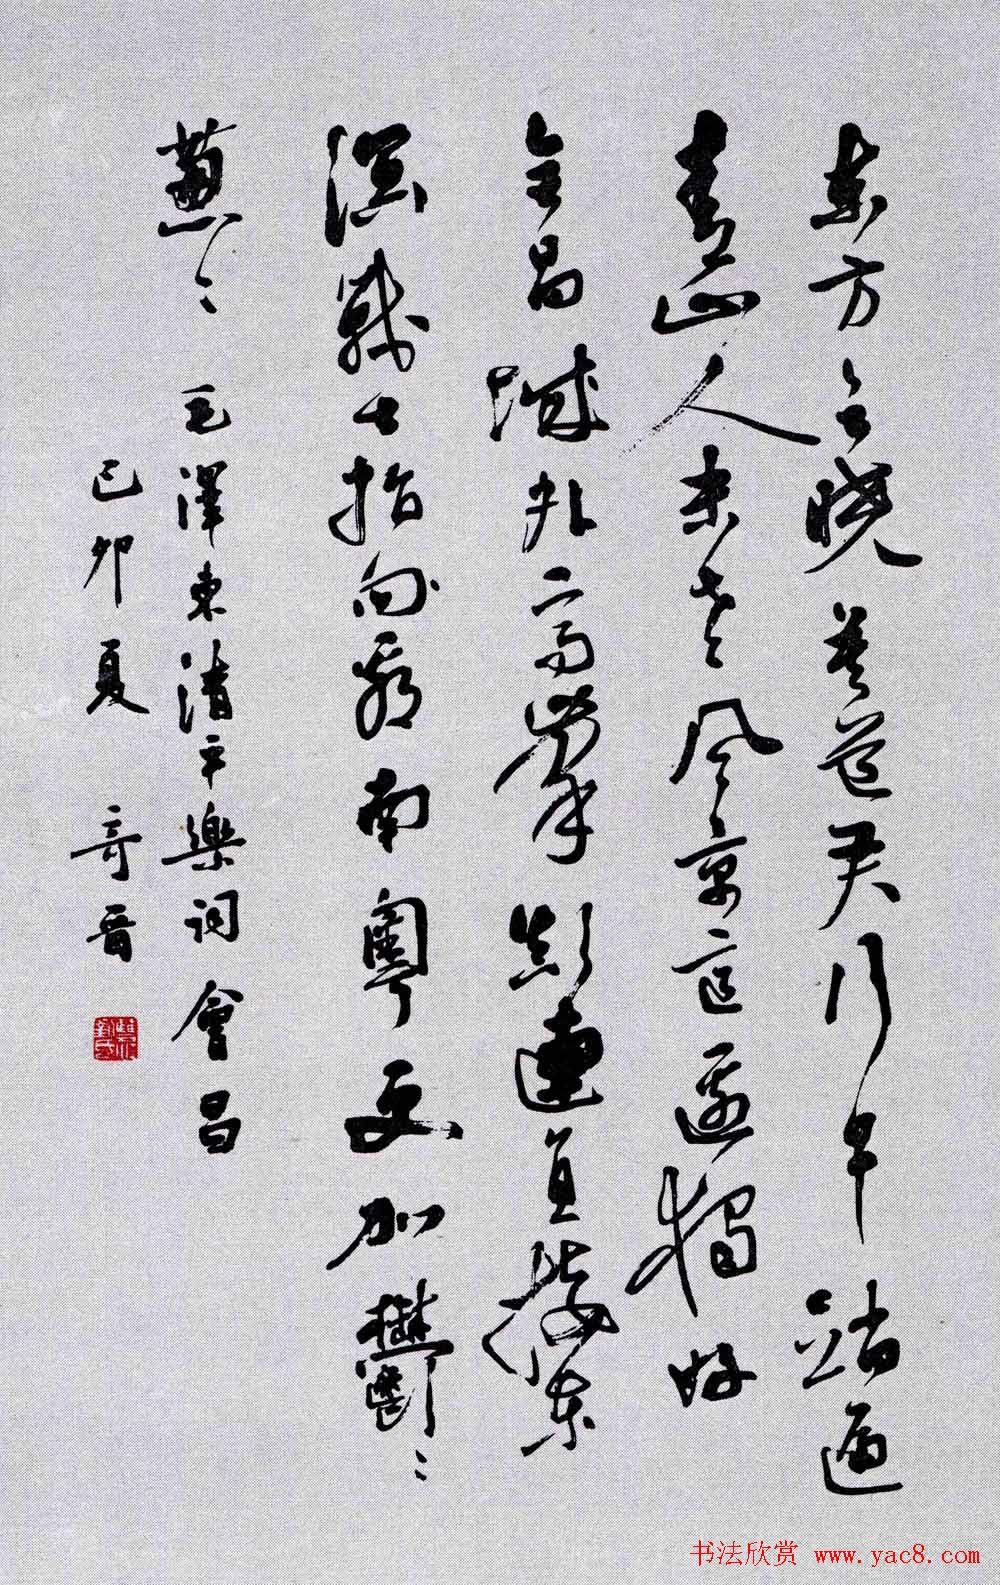 東方欲晓莫道君行早踏遍
青山人未老风景這邊獨好
會昌城外高峯颠連直接東
溟戰士指向看南粤更加鬱々
蔥々 毛澤東清平樂詞會昌
己卯夏 奇晋
书法欣赏 www.yac8.com